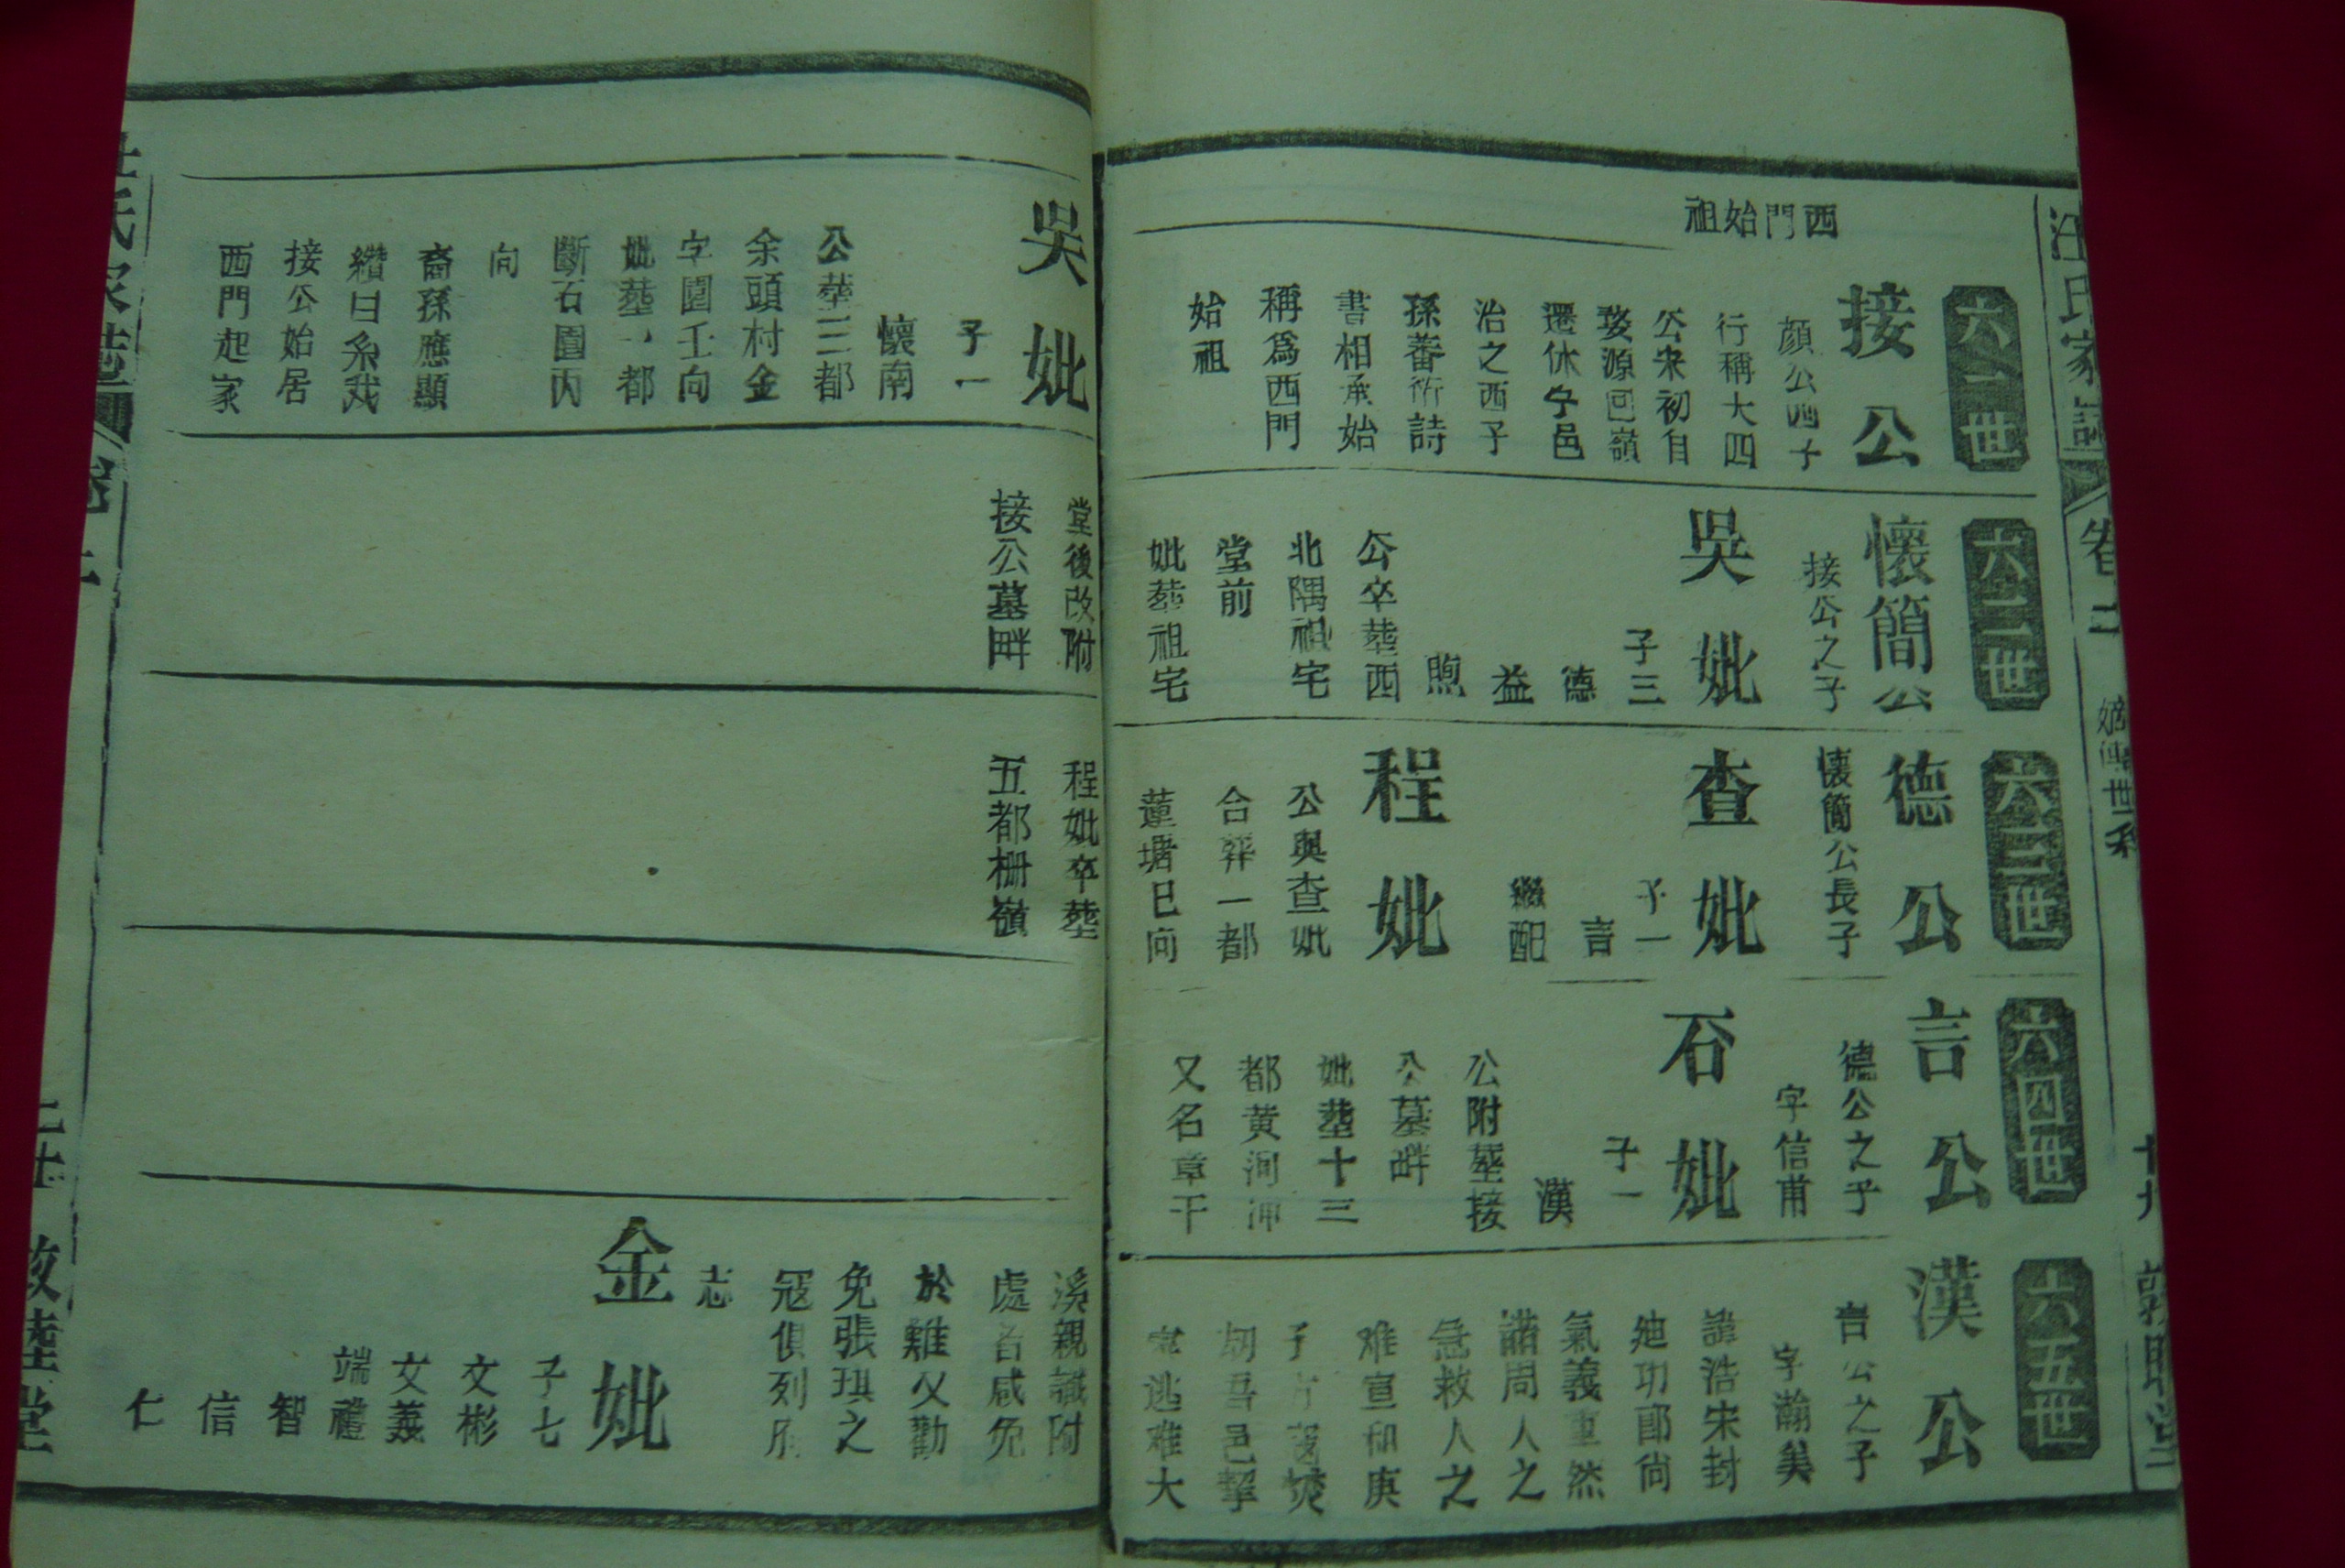 汪氏家譜
卷二
西門始祖
六一世
接公
顏公四子
行稱大四
公宋初自
婺源回嶺
遷休寧邑
治之西子
孫蕃衍詩
書相承始
稱爲西門
始祖
六二世
懷簡公
接公之子
吳妣
子三
德
益
煦
公卒塟西
北隅祖宅
堂前
妣塟祖宅
六三世
德公
懷簡公長子
查妣
子一
言
繼配
程妣
公與查妣
合葬一都
蓮塘巳向
六四世
言公
德公之子
字信甫
石妣
子一
漢
公附塟接
公墓畔
妣塟十三
都黄洞沖
又名章干
六五世
漢公
言公之子
字瀚美
諱浩宋封
廸功郎尚
氣義重然
諾周人之
急救人之
难宣和庚
子方寇焚
刼吾邑挈
家逃难大
吳妣
子一
懷南
公塟三都
余頭村金
字園壬向
妣塟一都
斷石園丙
向
裔孫應顯
纘曰系我
接公始居
西門起家
堂後改附
接公墓畔
程妣卒塟
五都柵嶺
溪親識附
處者咸免
於難又勸
免張琪之
冦俱列府
志
金妣
子七
文彬
文義
端禮
智
信
仁